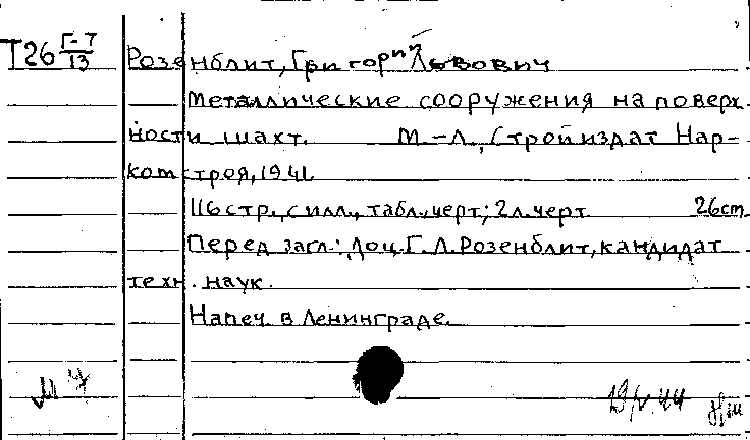 Т26 Г-7/13 Розенблит, Григорий Львович
Металлические сооружения на поверх-
ности шахт. М.-Л., Стройиздат Нар-
комстроя, 1941
116 стр., с илл., табл., черт; 2 л. черт 26 cm
Перед загл.: Доц. Г. Л. Розенблит, кандидат
техн. наук.
Напеч. в Ленинграде.